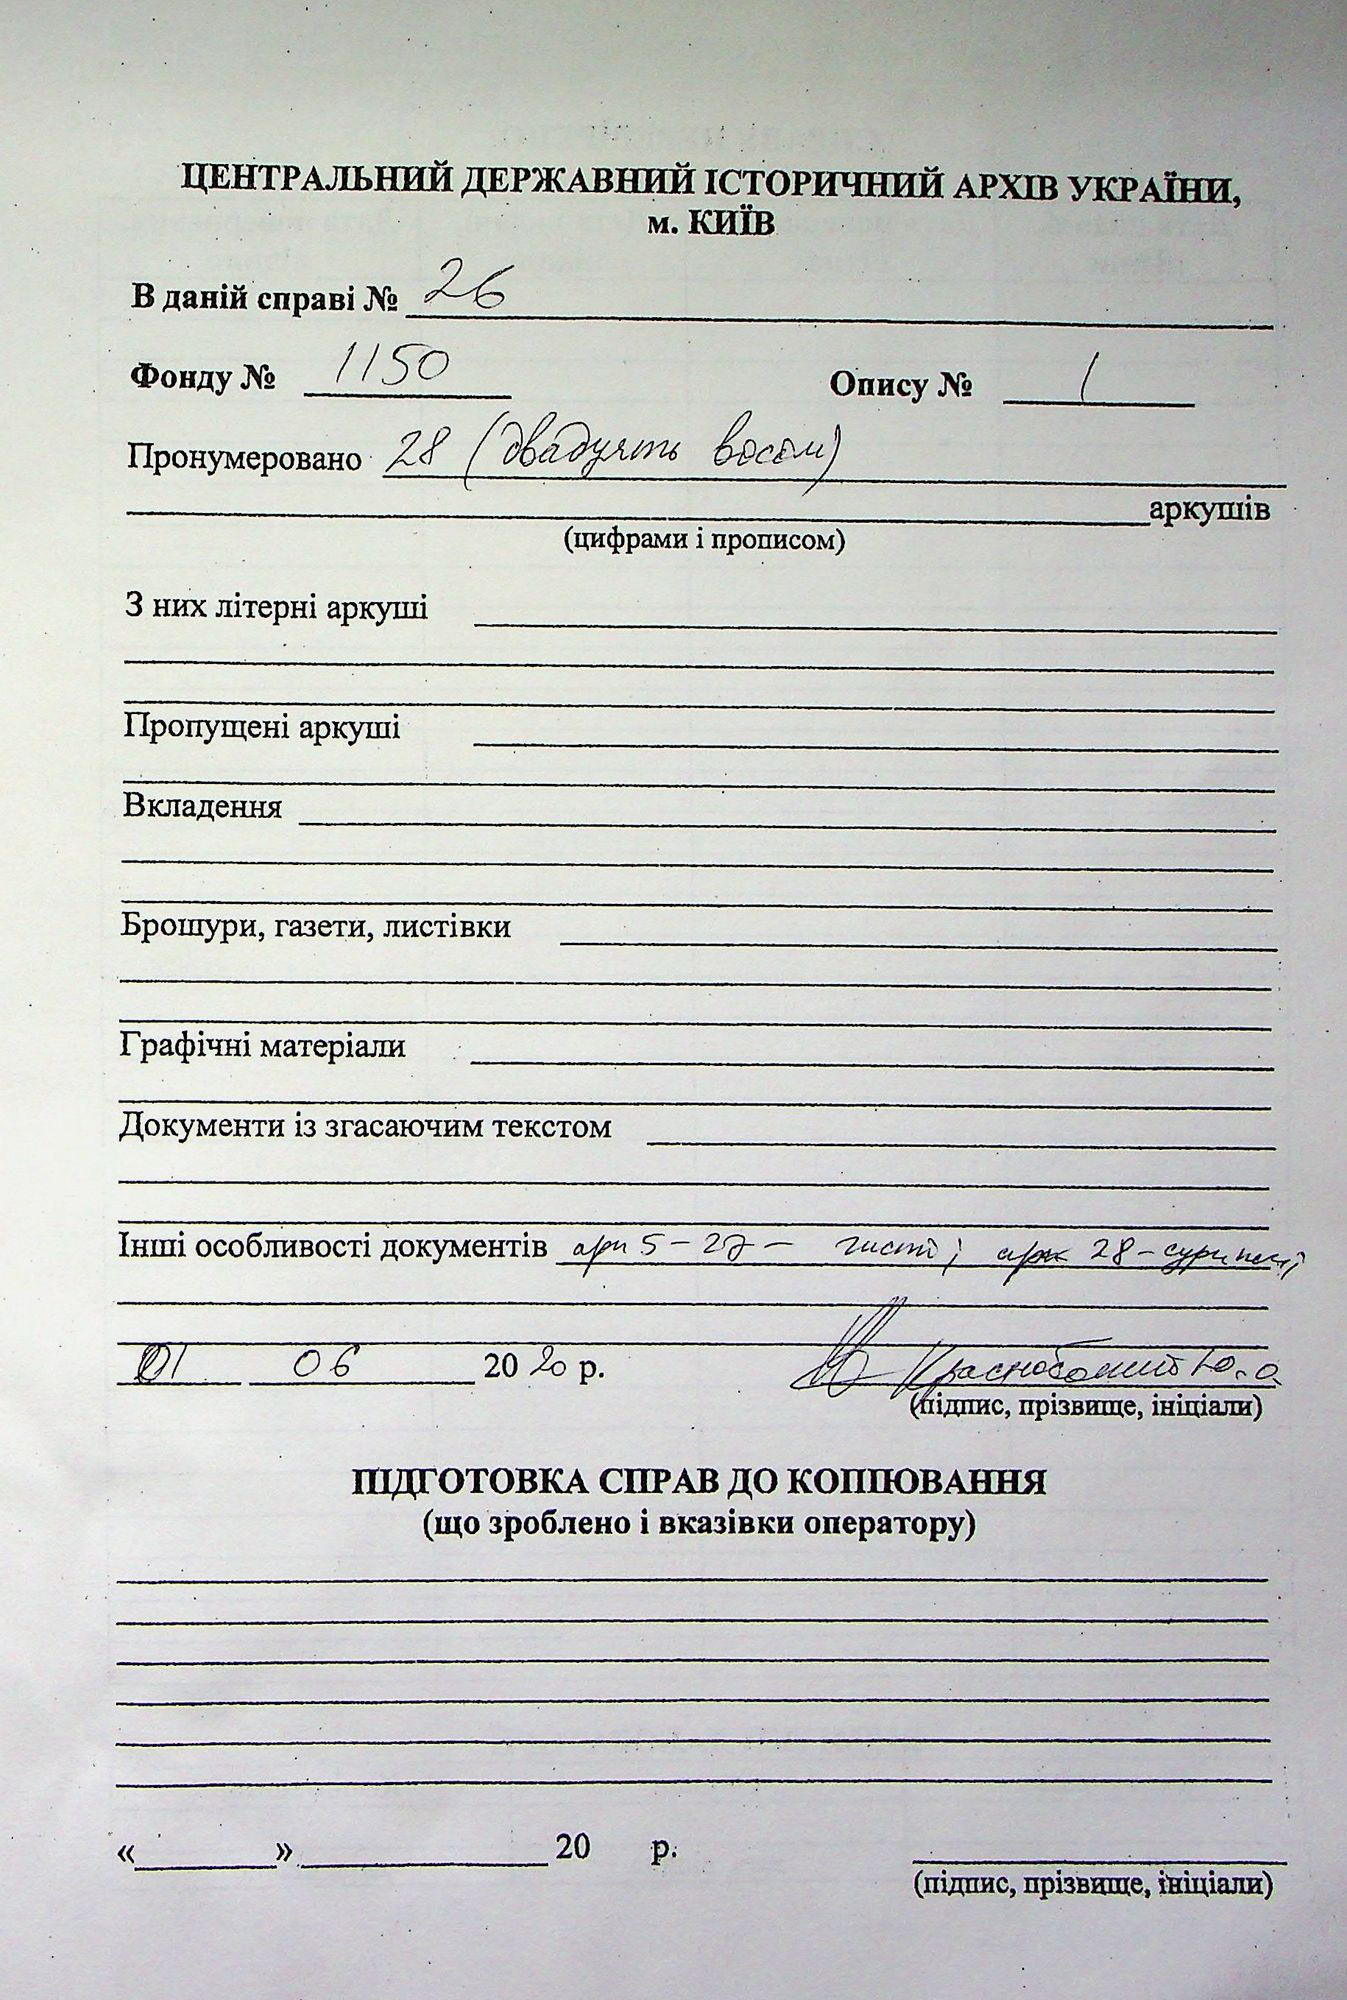 ЦЕНТРАЛЬНИЙ ДЕРЖАВНИЙ ІСТОРИЧНИЙ АРХІВ УКРАЇНИ,
м. КИЇВ
В даній справі № 26
Фонду № 1150 Опису № 1
Пронумеровано 28 (двадцять восем)
аркушів
(цифрами і прописом)
З них літерні аркуші
Пропущені аркуші
Вкладення
Брошури, газети, листівки
Графічні матеріали
Документи із згасаючим текстом
Інші особливості документів арк 5-27 - чисті; арк 28-
01 06 2020 р.
(підпис, прізвище, ініціали)
ПІДГОТОВКА СПРАВ ДО КОПІЮВАННЯ
(що зроблено і вказівки оператору)
«» 20 р.
(підпис, прізвище, ініціали)